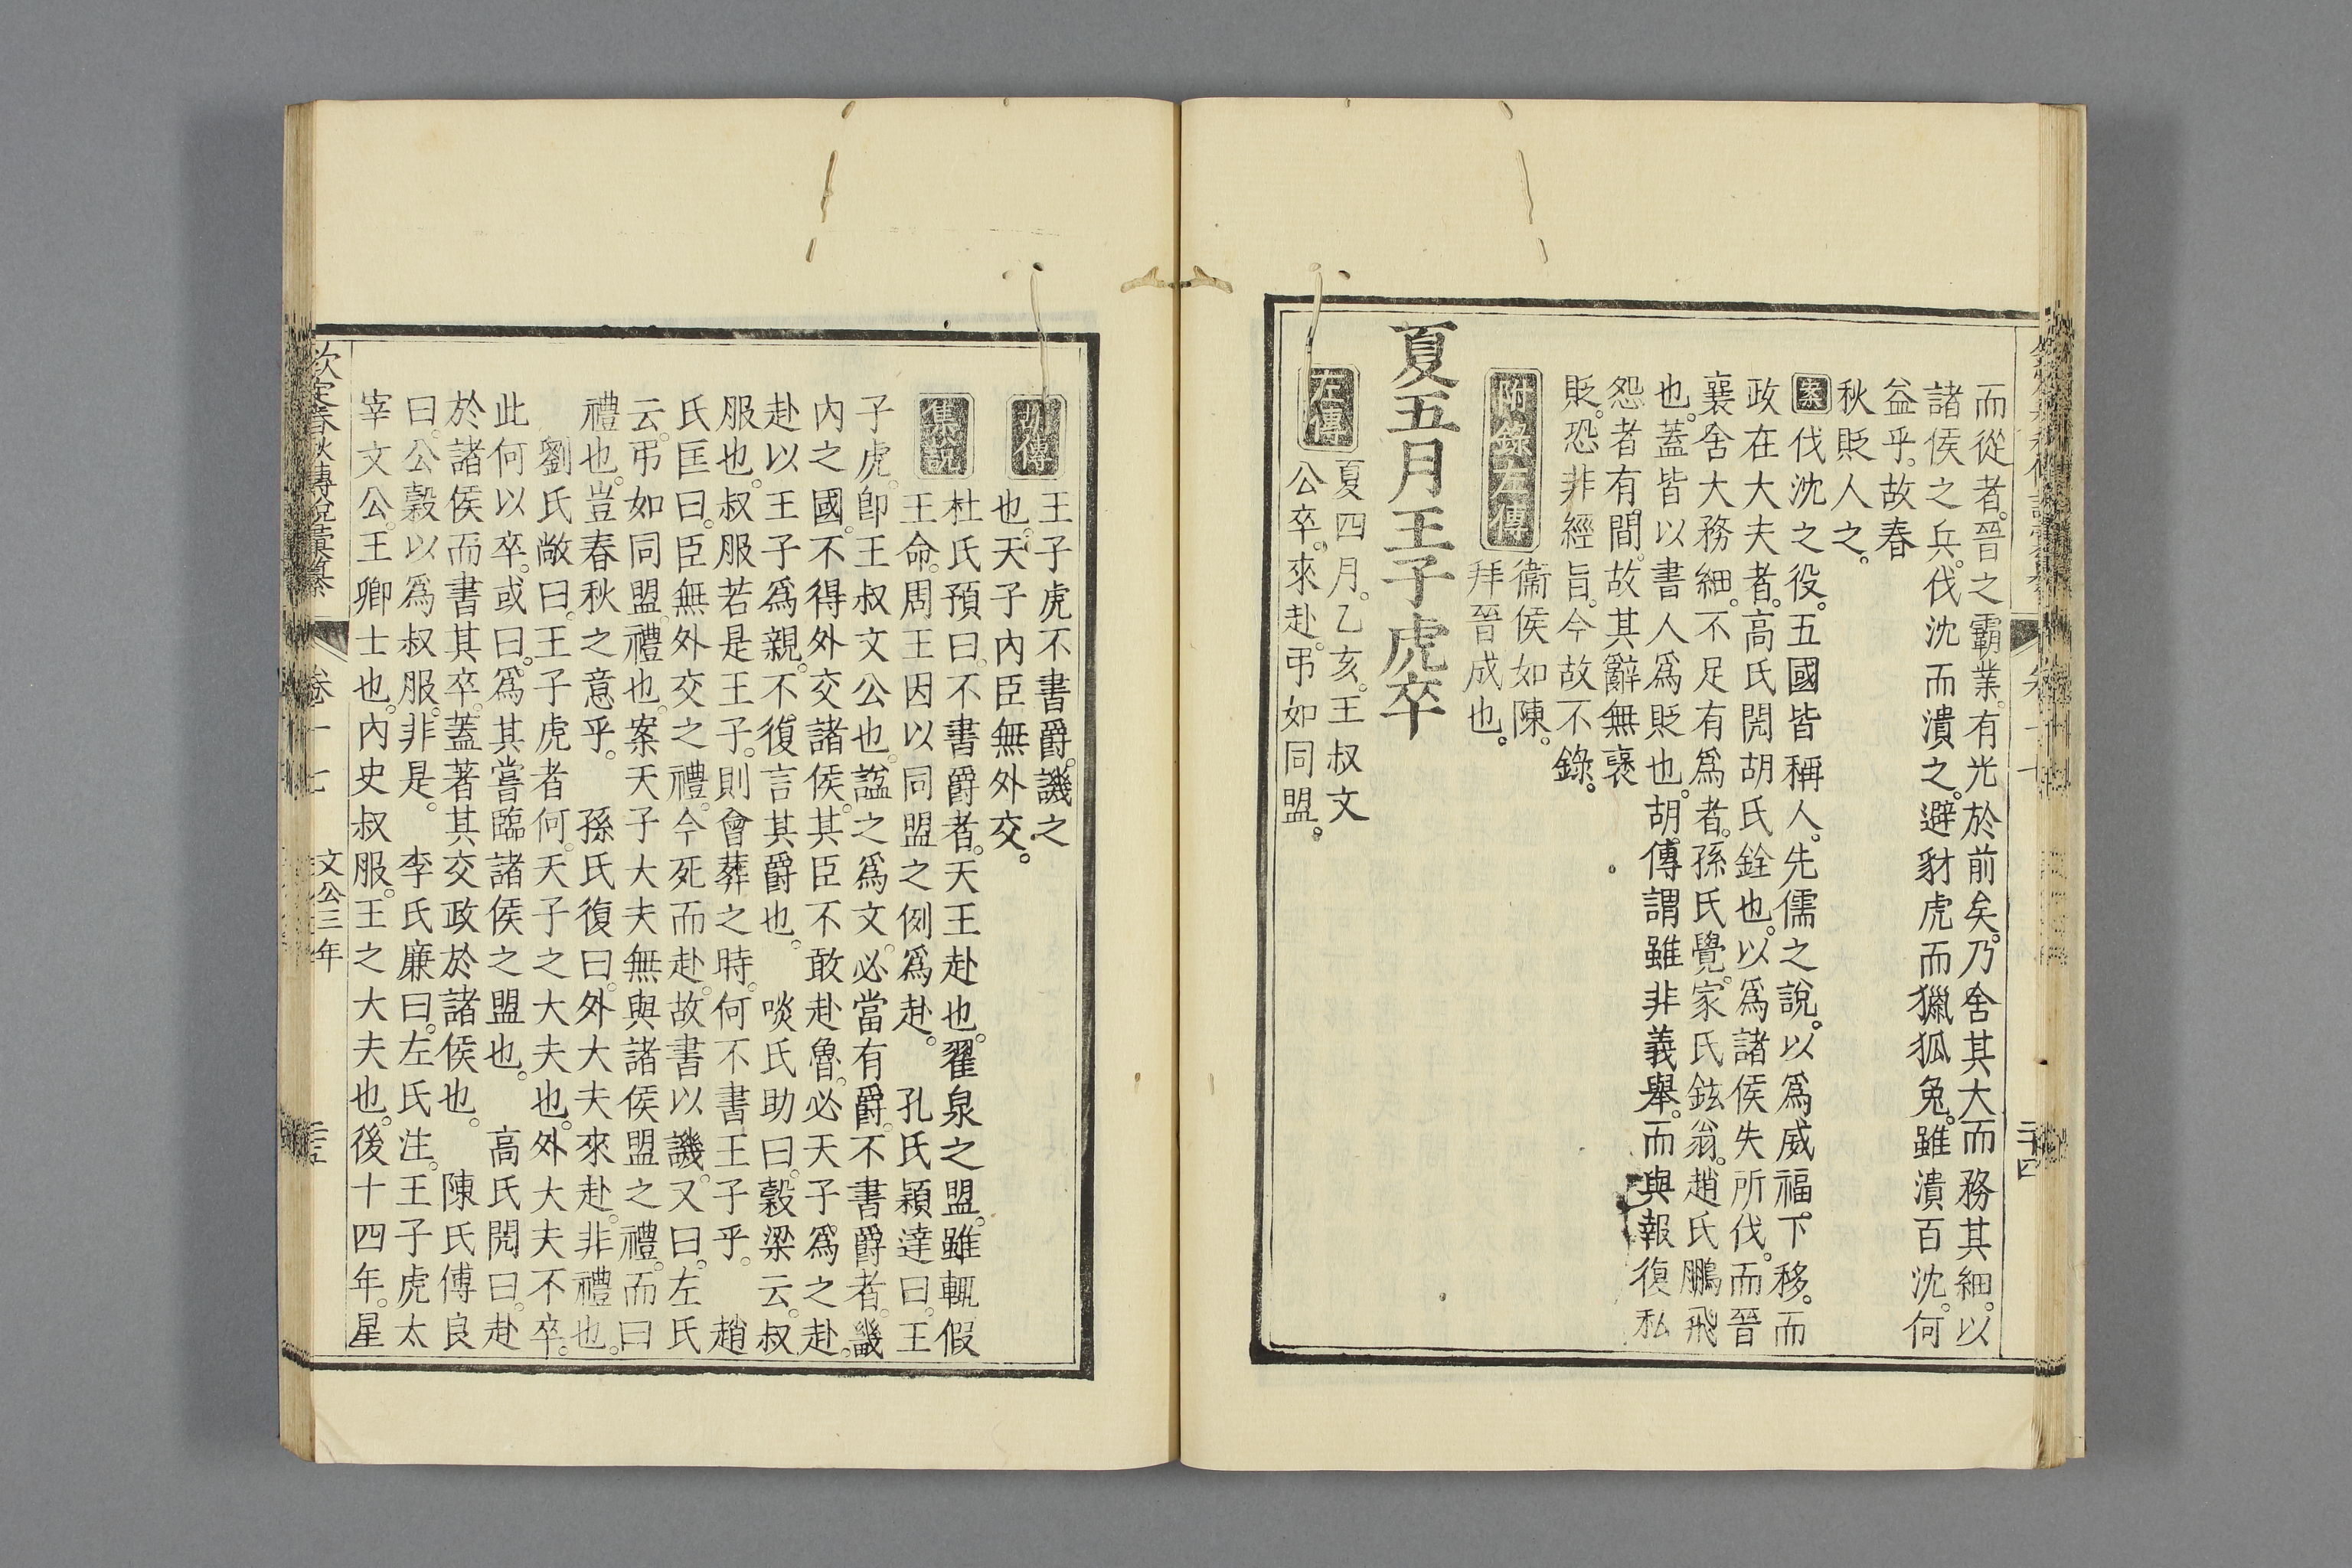 而從者。晉之霸業。有光於前矣。乃舍其大而務其細。以
諸侯之兵。伐沈而潰之。避豺虎而獵狐兔。雖潰百沈。何
益乎。故春
秋貶人之。
案伐沈之役。五國皆稱人。先儒之說。以爲威福下移。而
政在大夫者。高氏閌胡氏銓也。以爲諸侯失所伐。而晉
襄舍大務細。不足有爲者。孫氏覺。家氏鉉翁。趙氏鵬飛
也。蓋皆以書人爲貶也。胡傳謂雖非義舉。而與報復私
怨者有間。故其辭無襃
貶。恐非經旨。今故不錄。
附錄左傳
衞侯如陳。
拜晉成也。
夏五月王子虎卒
左傳
夏四月。乙亥。王叔文
公卒。來赴。弔如同盟。
胡傳
王子虎不書爵。譏之
也。天子內臣無外交。
集說
杜氏預曰。不書爵者。天王赴也。翟泉之盟。雖輒假
王命。周王因以同盟之例爲赴。 孔氏穎達曰。王
子虎。卽王叔文公也。諡之爲文。必當有爵。不書爵者。畿
內之國。不得外交諸侯。其臣不敢赴魯。必天子爲之赴。
赴以王子爲親。不復言其爵也。 啖氏助曰。穀梁云。叔
服也。叔服若是王子。則會葬之時。何不書王子乎。 趙
氏匡曰。臣無外交之禮。今死而赴。故書以譏。又曰。左氏
云。弔如同盟。禮也。案天子大夫無與諸侯盟之禮。而曰
禮也。豈春秋之意乎。 孫氏復曰。外大夫來赴。非禮也。
劉氏敞曰。王子虎者何。天子之大夫也。外大夫不卒。
此何以卒。或曰。爲其嘗臨諸侯之盟也。 高氏閌曰。赴
於諸侯而書其卒。蓋著其交政於諸侯也。 陳氏傅良
曰。公穀以爲叔服。非是。 李氏廉曰。左氏注。王子虎太
宰文公。王卿士也。內史叔服。王之大夫也。後十四年。星
欽定春秋傳說彙纂
卷十七
文公三年